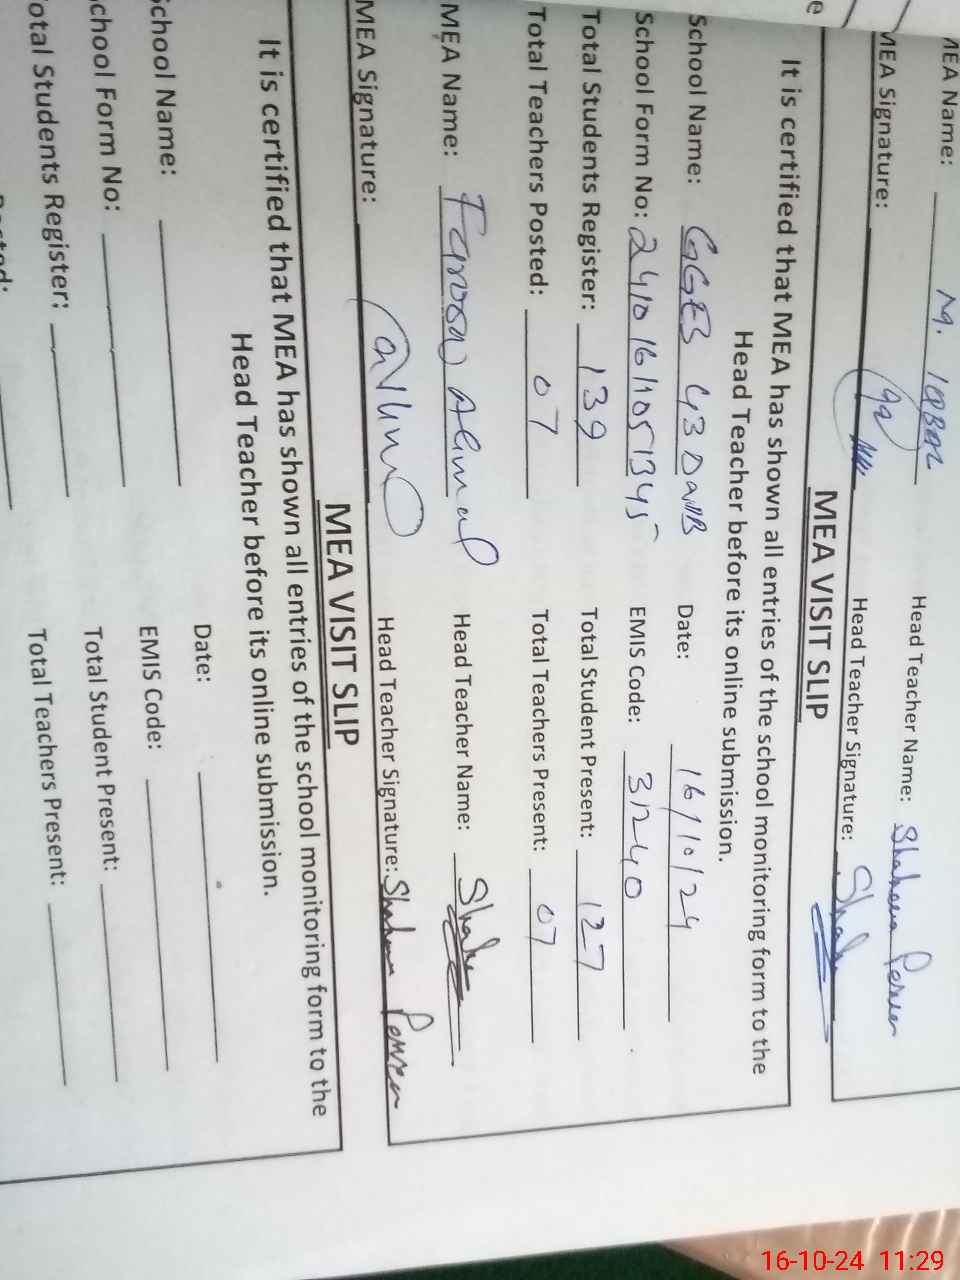 MEA Name: M. IQBAL Head Teacher Name: Shahena Perven
MEA Signature: Head Teacher Signature:
MEA VISIT SLIP
It is certified that MEA has shown all entries of the school monitoring form to the
Head Teacher before its online submission.
School Name: GGES 43 Date: 16/10/24
School Form No: EMIS Code: 31240
Total Students Register: 139 Total Student Present: 127
Total Teachers Posted: 07 Total Teachers Present: 07
MEA Name: Head Teacher Name:
MEA Signature: Head Teacher Signature:
MEA VISIT SLIP
It is certified that MEA has shown all entries of the school monitoring form to the
Head Teacher before its online submission.
School Name: Date:
School Form No: EMIS Code:
Total Students Register: Total Student Present:
Total Teachers Present:
16-10-24 11:29